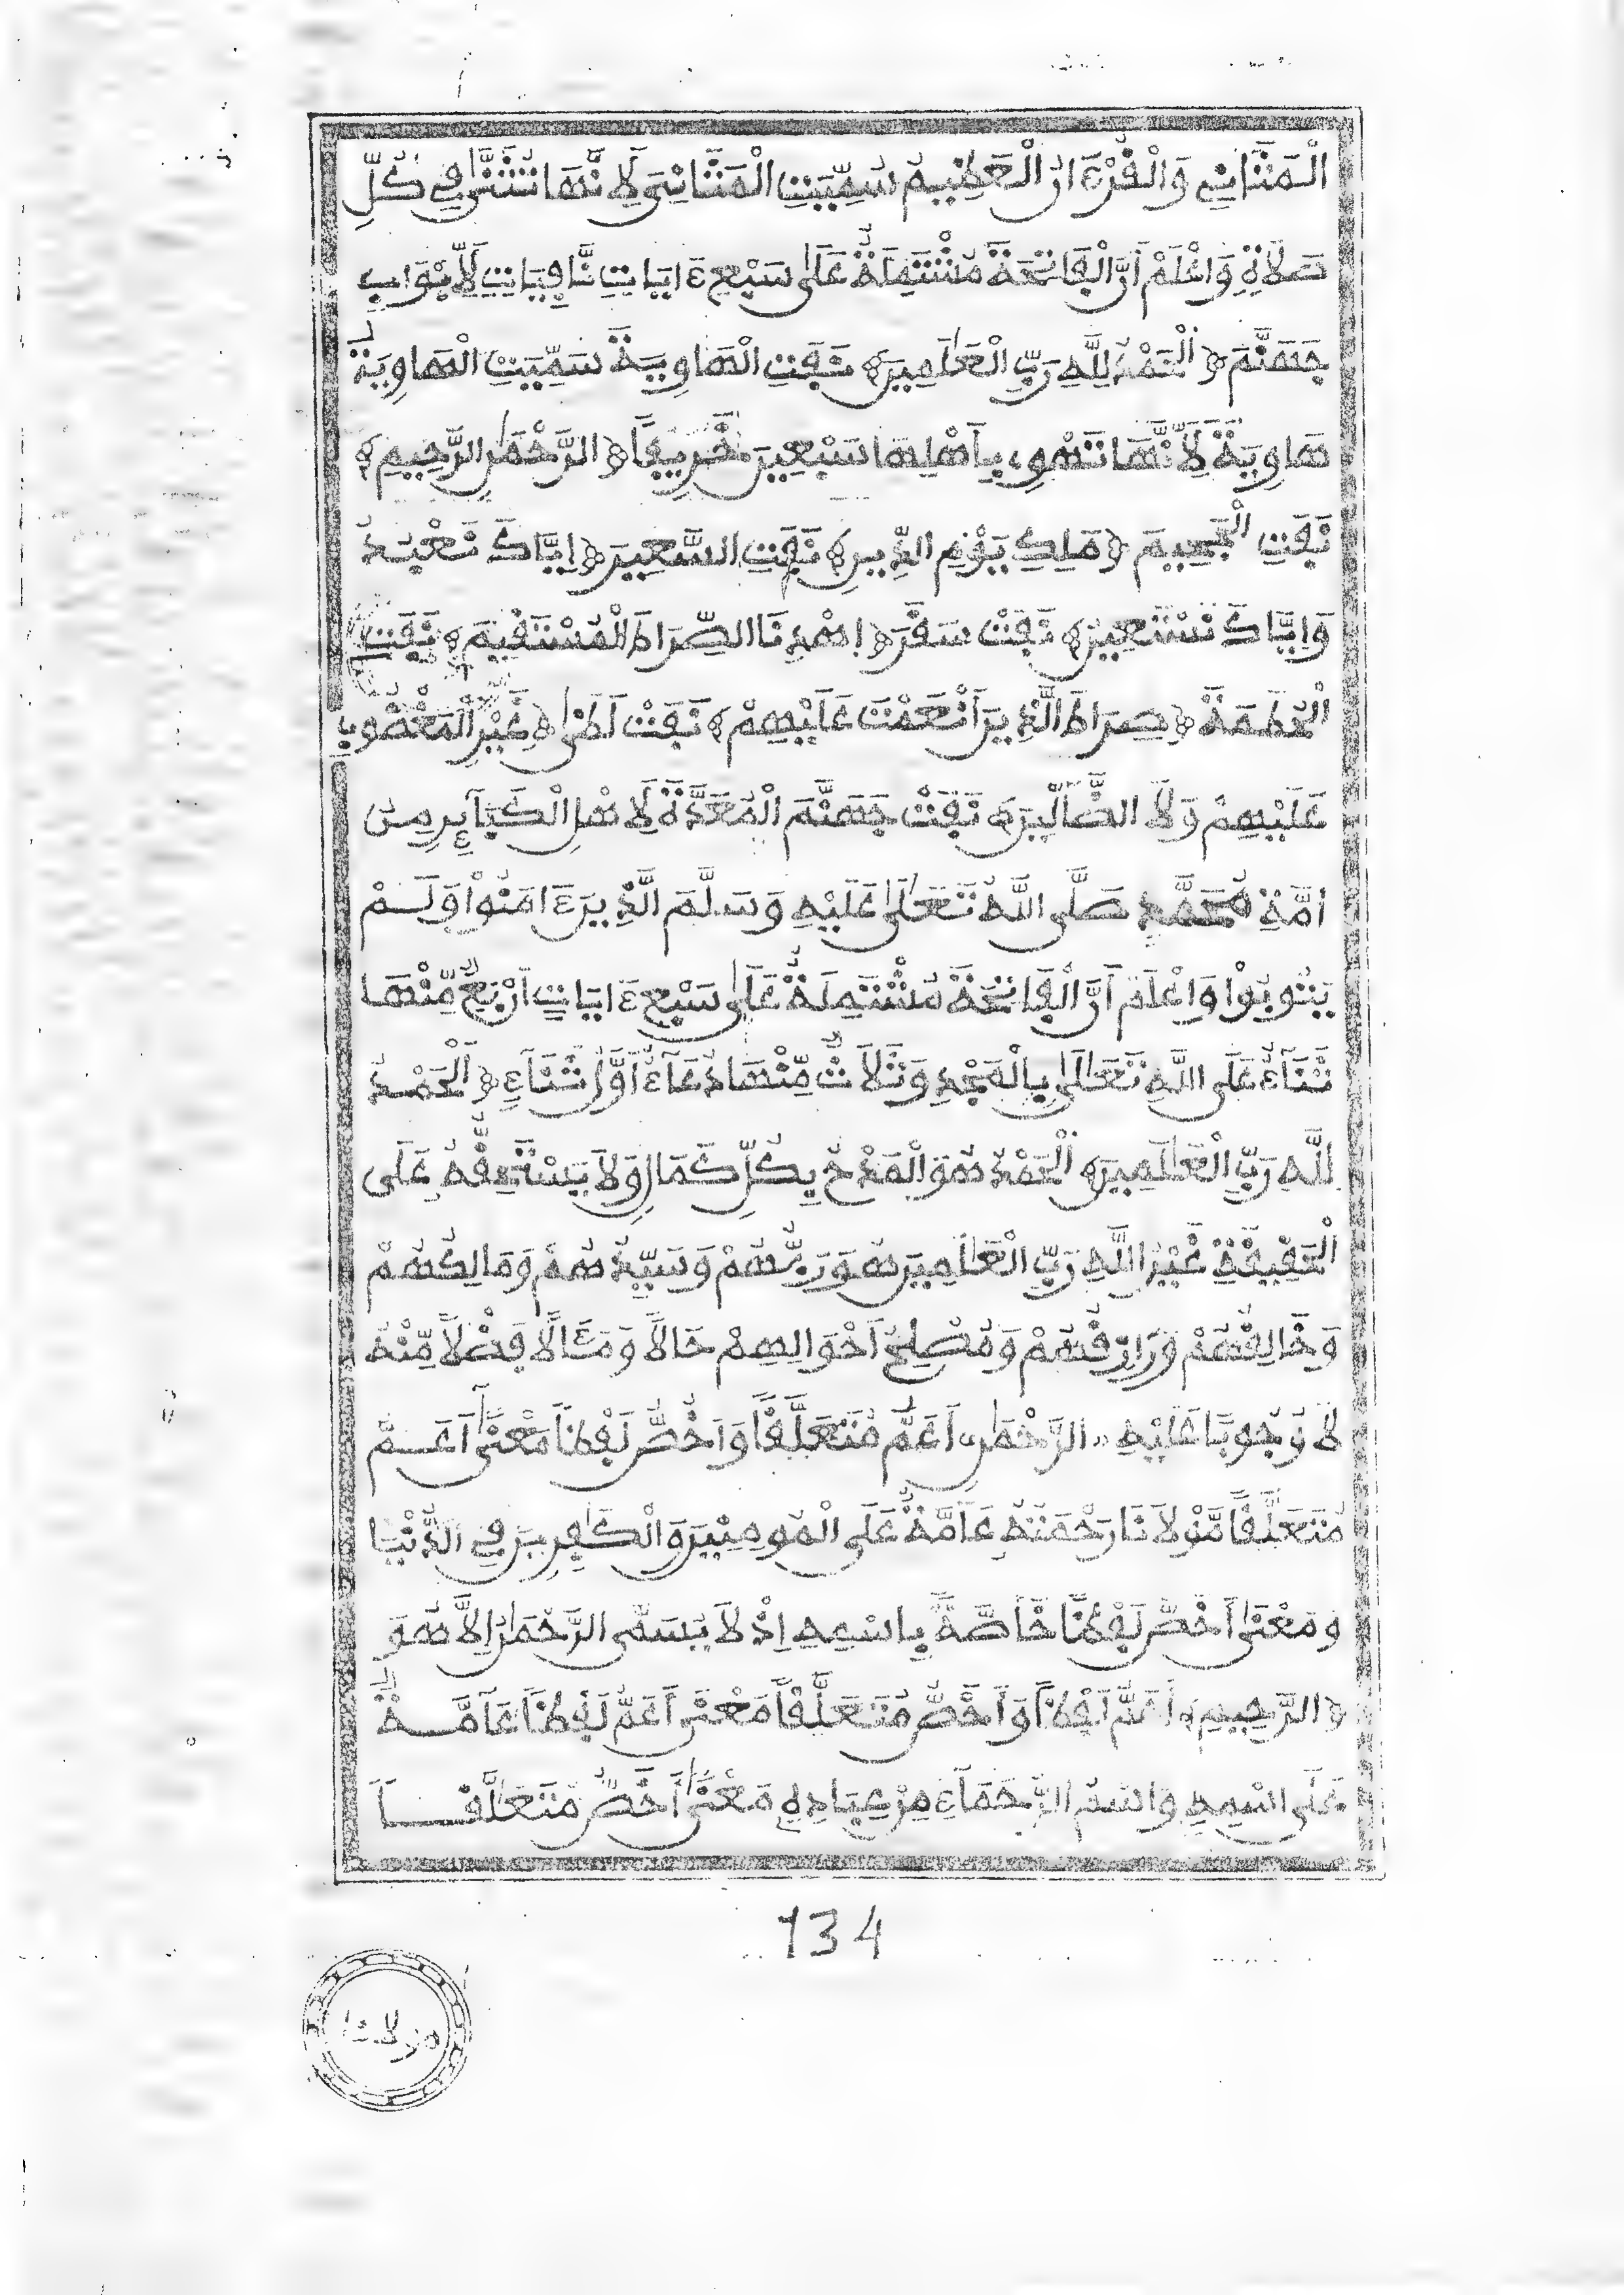 الْمَثَانِي وَالْقُرْءَانَ الْعَظِيمَ سُمِّيَتِ الْمَثَانِيَ لِأَنَّهَا تُثَنَّى فِي كُلِّ
صَلَاةٍ وَاعْلَمْ أَنَّ الْفَاتِحَةَ مُشْتَمِلَةٌ عَلَى سَبْعِ ءَايَاتٍ نَّافِيَاتٍ لِأَبْوَابِ
جَهَنَّمَ ﴿الْحَمْدُ لِلَّهِ رَبِّ الْعَالَمِينَ﴾ نَفَتِ الْهَاوِيَةَ سُمِّيَتِ الْهَاوِيَةُ
هَاوِيَةً لِأَنَّهَا تَهْوِي بِأَهْلِهَا سَبْعِينَ خَرِيفًا ﴿الرَّحْمَنِ الرَّحِيمِ﴾
نَفَتِ الْجَحِيمَ ﴿مَلِكِ يَوْمِ الدِّينِ﴾ نَفَتِ السَّعِيرَ ﴿إِيَّاكَ نَعْبُدُ
وَإِيَّاكَ نَسْتَعِينُ﴾ نَفَتْ سَقَرَ ﴿اِهْدِنَا الصِّرَاطَ الْمُسْتَقِيمَ﴾ نَفَتِ
الْحُطَمَةَ ﴿صِرَاطَ الَّذِينَ أَنْعَمْتَ عَلَيْهِمْ﴾ نَفَتْ لَظَى ﴿غَيْرِ الْمَغْضُوبِ
عَلَيْهِمْ وَلَا الضَّالِّينَ﴾ نَفَتْ جَهَنَّمَ الْمُعَدَّةَ لِأَهْلِ الْكَبَآئِرِ مِنْ
أُمَّةِ مُحَمَّدٍ صَلَّى اللَّهُ تَعَالَى عَلَيْهِ وَسَلَّمَ الَّذِينَ ءَامَنُوا وَلَمْ
يَتُوبُوا وَاعْلَمْ أَنَّ الْفَاتِحَةَ مُشْتَمِلَةٌ عَلَى سَبْعِ ءَايَاتٍ أَرْبَعٌ مِّنْهَا
ثَنَآءٌ عَلَى اللَّهِ تَعَالَى بِالْمَجْدِ وَثَلَاثٌ مِّنْهَا دُعَآءٌ أَوَّلُ ثَنَآءٍ ﴿الْحَمْدُ
لِلَّهِ رَبِّ الْعَالَمِينَ﴾ الْحَمْدُ هُوَ الْمَدْحُ بِكُلِّ كَمَالٍ وَلَا يَسْتَحِقُّهُ عَلَى
الْحَقِيقَةِ غَيْرُ اللَّهِ رَبِّ الْعَالَمِينَ هُوَ رَبُّهُمْ وَسَيِّدُهُمْ وَمَالِكُهُمْ
وَخَالِقُهُمْ وَرَازِقُهُمْ وَمُصْلِحُ أَحْوَالِهِمْ حَالًا وَمَئَالًا فَضْلًا مِّنْهُ
لَا وُجُوبًا عَلَيْهِ ﴿الرَّحْمَنِ﴾ أَعَمُّ مُتَعَلَّقًا وَأَخَصُّ لَفْظًا مَعْنَى أَعَمُّ
مُتَعَلَّقًا مَّوْلَانَا رَحْمَتُهُ عَامَّةٌ عَلَى الْمُومِنِينَ وَالْكَافِرِينَ فِي الدُّنْيَا
وَمَعْنَى أَخَصُّ لَفْظًا خَاصَّةٌ بِاسْمِهِ إِذْ لَا يُسَمَّى الرَّحْمَنُ إِلَّا هُوَ
﴿الرَّحِيمِ﴾ أَعَمُّ لَفْظًا وَأَخَصُّ مُتَعَلَّقًا مَعْنَى أَعَمُّ لَفْظًا عَامَّةٌ
عَلَى اسْمِهِ وَاسْمُ الرُّحَمَآءِ مِنْ عِبَادِهِ مَعْنَى أَخَصُّ مُتَعَلَّقًا
134
مولانا